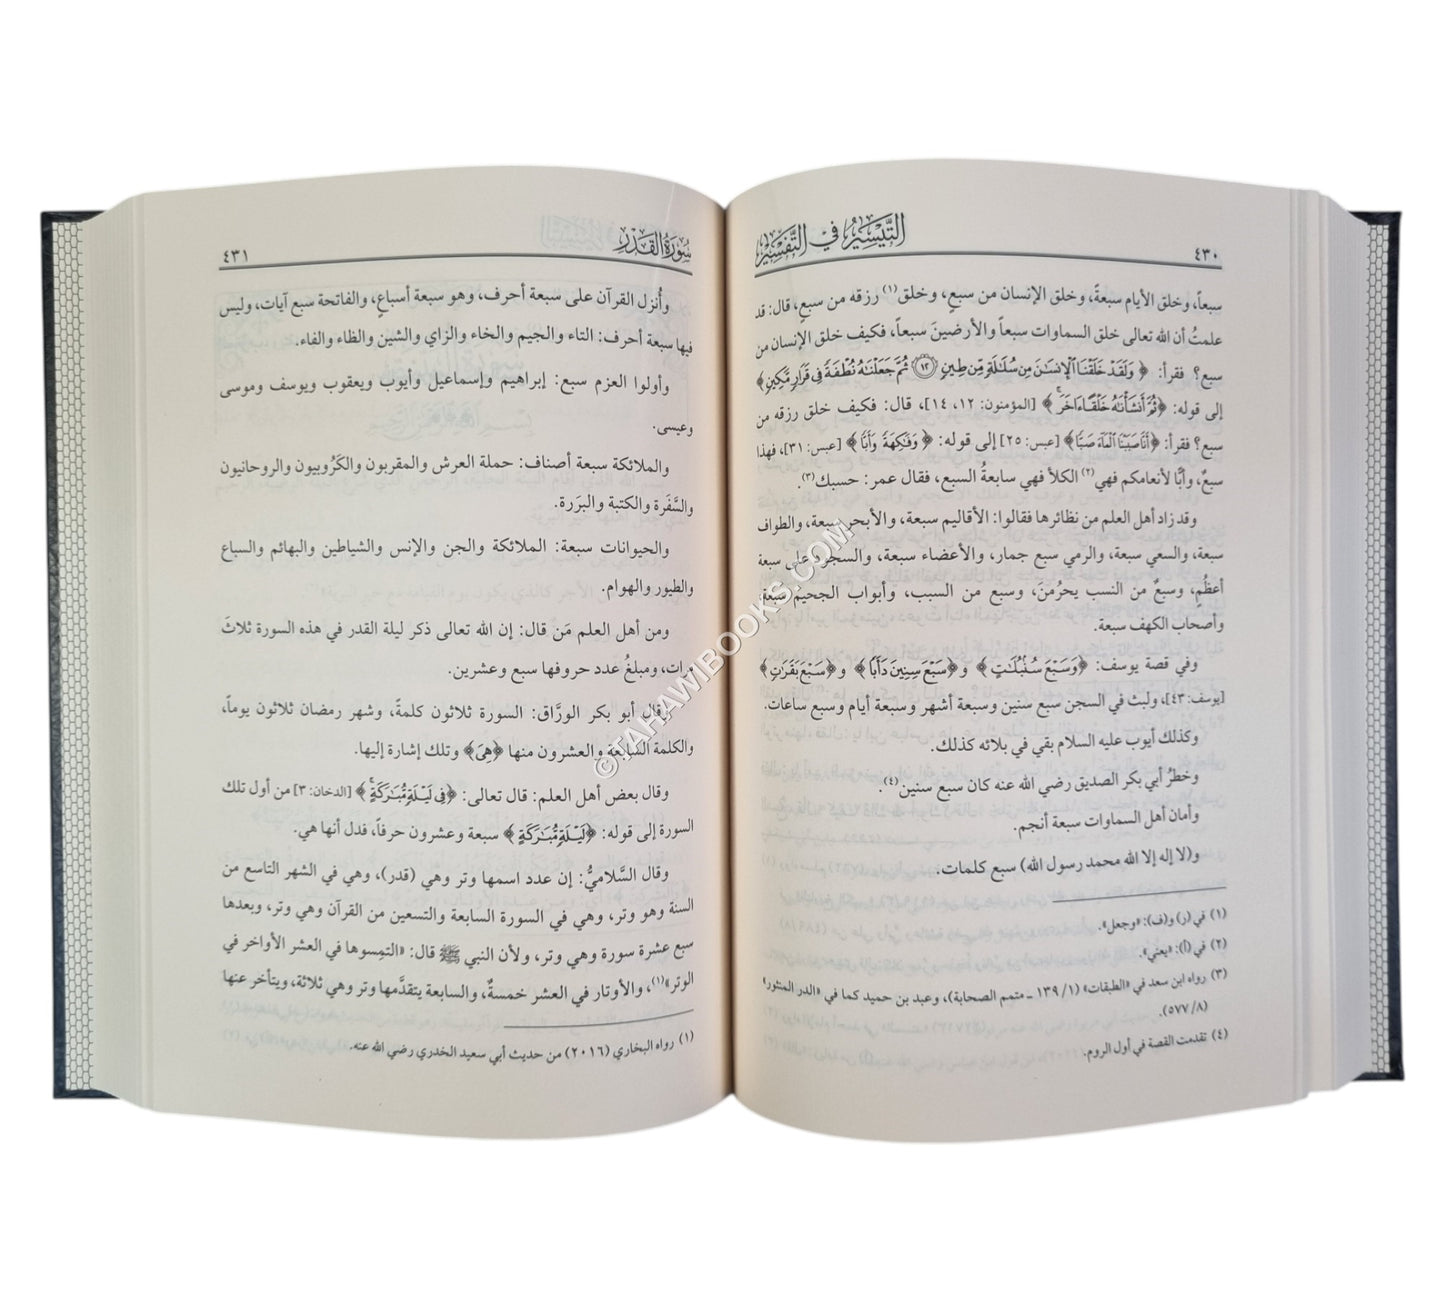 ٤٣٠
التيسير في التفسير
سبعاً، وخلق الأيام سبعةً، وخلق الإنسان من سبعٍ، وخلق(١) رزقه من سبعٍ، قال: قد
علمتُ أن الله تعالى خلق السماوات سبعاً والأرضينَ سبعاً، فكيف خلق الإنسان من
سبع؟ فقرأ: ﴿وَلَقَدْ خَلَقْنَا ٱلْإِنسَٰنَ مِن سُلَٰلَةٍ مِّن طِينٍ ۝١٢ ثُمَّ جَعَلْنَٰهُ نُطْفَةً فِى قَرَارٍ مَّكِينٍ﴾
إلى قوله: ﴿ثُمَّ أَنشَأْنَٰهُ خَلْقًا ءَاخَرَ﴾ [المؤمنون: ١٢، ١٤]، قال: فكيف خلق رزقه من
سبع؟ فقرأ: ﴿أَنَّا صَبَبْنَا ٱلْمَآءَ صَبًّا﴾ [عبس: ٢٥] إلى قوله: ﴿وَفَٰكِهَةً وَأَبًّا﴾ [عبس: ٣١]، فهذا
سبعٌ، وأبًّا لأنعامكم فهي(٢) الكلأ فهي سابعةُ السبع، فقال عمر: حسبك(٣).
وقد زاد أهل العلم من نظائرها فقالوا: الأقاليم سبعة، والأبحر سبعة، والطواف
سبعة، والسعي سبعة، والرمي سبع جمار، والأعضاء سبعة، والسجود على سبعة
أعظُمٍ، وسبعٌ من النسب يحرُمنَ، وسبع من السبب، وأبواب الجحيم سبعة،
وأصحاب الكهف سبعة.
وفي قصة يوسف: ﴿وَسَبْعَ سُنۢبُلَٰتٍ﴾ و﴿سَبْعَ سِنِينَ دَأَبًا﴾ و﴿سَبْعَ بَقَرَٰتٍ﴾
[يوسف: ٤٣]، ولبث في السجن سبع سنين وسبعة أشهر وسبعة أيام وسبع ساعات.
وكذلك أيوب عليه السلام بقي في بلائه كذلك.
وخطرُ أبي بكر الصديق رضي الله عنه كان سبع سنين(٤).
وأمان أهل السماوات سبعة أنجم.
و(لا إله إلا الله محمد رسول الله) سبع كلمات.
(١) في (ر) و(ف): «وجعل».
(٢) في (أ): «يعني».
(٣) رواه ابن سعد في «الطبقات» (١/ ١٣٩ ـ متمم الصحابة)، وعبد بن حميد كما في «الدر المنثور»
(٨/ ٥٧٧).
(٤) تقدمت القصة في أول الروم.
سورة القدر
٤٣١
وأُنزل القرآن على سبعة أحرف، وهو سبعة أسباعٍ، والفاتحة سبع آيات، وليس
فيها سبعة أحرف: الثاء والجيم والخاء والزاي والشين والظاء والفاء.
وأولوا العزم سبع: إبراهيم وإسماعيل وأيوب ويعقوب ويوسف وموسى
وعيسى.
والملائكة سبعة أصناف: حملة العرش والمقربون والكَرُوبيون والروحانيون
والسَّفَرة والكتبة والبرَرة.
والحيوانات سبعة: الملائكة والجن والإنس والشياطين والبهائم والسباع
والطيور والهوام.
ومن أهل العلم مَن قال: إن الله تعالى ذكر ليلة القدر في هذه السورة ثلاثَ
مرات، ومبلغُ عدد حروفها سبع وعشرين.
وقال أبو بكر الورَّاق: السورة ثلاثون كلمةً، وشهر رمضان ثلاثون يوماً،
والكلمة السابعة والعشرون منها ﴿هِىَ﴾ وتلك إشارة إليها.
وقال بعض أهل العلم: قال تعالى: ﴿فِى لَيْلَةٍ مُّبَٰرَكَةٍ﴾ [الدخان: ٣] من أول تلك
السورة إلى قوله: ﴿لَيْلَةٍ مُّبَٰرَكَةٍ﴾ سبعة وعشرون حرفاً، فدل أنها هي.
وقال السَّلاميُّ: إن عدد اسمها وتر وهي (قدر)، وهي في الشهر التاسع من
السنة وهو وتر، وهي في السورة السابعة والتسعين من القرآن وهي وتر، وبعدها
سبع عشرة سورة وهي وتر، ولأن النبي ﷺ قال: «التمِسوها في العشر الأواخر في
الوتر»(١)، والأوتار في العشر خمسةٌ، والسابعة يتقدَّمها وتر وهي ثلاثة، ويتأخر عنها
(١) رواه البخاري (٢٠١٦) من حديث أبي سعيد الخدري رضي الله عنه.
©TAHAWIBOOKS.COM